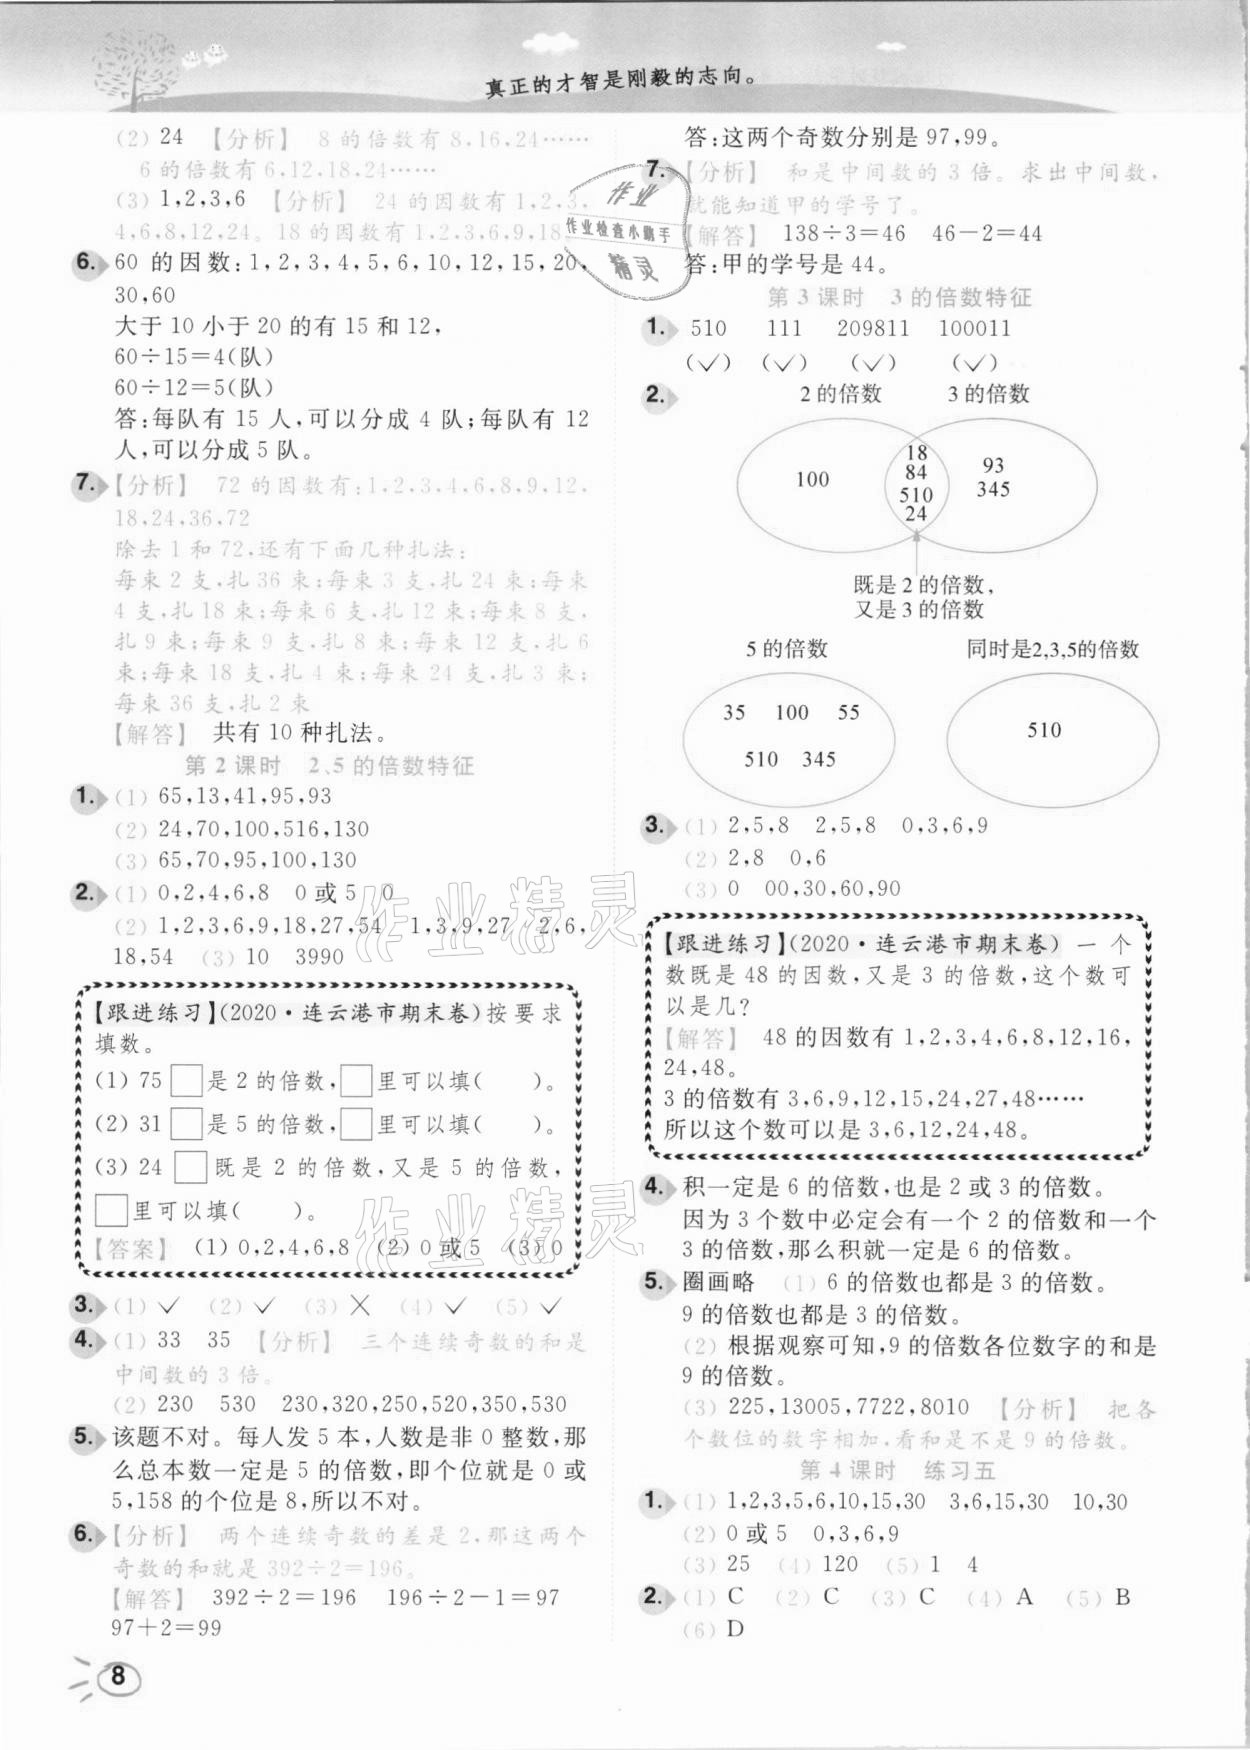 真正的才智是刚毅的志向。
(2) 24 【分析】 8 的倍数有 8,16,24……
6 的倍数有 6,12,18,24……
(3) 1,2,3,6 【分析】 24 的因数有 1,2,3,
4,6,8,12,24。18 的因数有 1,2,3,6,9,18
6. 60 的因数:1,2,3,4,5,6,10,12,15,20,
30,60
大于 10 小于 20 的有 15 和 12,
60÷15=4(队)
60÷12=5(队)
答:每队有 15 人,可以分成 4 队;每队有 12
人,可以分成 5 队。
7. 【分析】 72 的因数有:1,2,3,4,6,8,9,12,
18,24,36,72
除去 1 和 72,还有下面几种扎法:
每束 2 支,扎 36 束;每束 3 支,扎 24 束;每束
4 支,扎 18 束;每束 6 支,扎 12 束;每束 8 支,
扎 9 束;每束 9 支,扎 8 束;每束 12 支,扎 6
束;每束 18 支,扎 4 束;每束 24 支,扎 3 束;
每束 36 支,扎 2 束
【解答】 共有 10 种扎法。
第 2 课时 2、5 的倍数特征
1. (1) 65,13,41,95,93
(2) 24,70,100,516,130
(3) 65,70,95,100,130
2. (1) 0,2,4,6,8 0 或 5 0
(2) 1,2,3,6,9,18,27,54 1,3,9,27 2,6,
18,54 (3) 10 3990
【跟进练习】(2020·连云港市期末卷)按要求
填数。
(1) 75 □ 是 2 的倍数,□ 里可以填( )。
(2) 31 □ 是 5 的倍数,□ 里可以填( )。
(3) 24 □ 既是 2 的倍数,又是 5 的倍数,
□ 里可以填( )。
【答案】 (1) 0,2,4,6,8 (2) 0 或 5 (3) 0
3. (1) ✓ (2) ✓ (3) ✗ (4) ✓ (5) ✓
4. (1) 33 35 【分析】 三个连续奇数的和是
中间数的 3 倍。
(2) 230 530 230,320,250,520,350,530
5. 该题不对。每人发 5 本,人数是非 0 整数,那
么总本数一定是 5 的倍数,即个位就是 0 或
5,158 的个位是 8,所以不对。
6. 【分析】 两个连续奇数的差是 2,那这两个
奇数的和就是 392÷2=196。
【解答】 392÷2=196 196÷2-1=97
97+2=99
8
答:这两个奇数分别是 97,99。
7. 【分析】 和是中间数的 3 倍。求出中间数,
就能知道甲的学号了。
【解答】 138÷3=46 46-2=44
答:甲的学号是 44。
第 3 课时 3 的倍数特征
1. 510 111 209811 100011
(✓) (✓) (✓) (✓)
2. 2 的倍数 3 的倍数
100
18
84
510
24
93
345
既是 2 的倍数,
又是 3 的倍数
5 的倍数 同时是2,3,5的倍数
35 100 55
510 345
510
3. (1) 2,5,8 2,5,8 0,3,6,9
(2) 2,8 0,6
(3) 0 00,30,60,90
【跟进练习】(2020·连云港市期末卷) 一个
数既是 48 的因数,又是 3 的倍数,这个数可
以是几?
【解答】 48 的因数有 1,2,3,4,6,8,12,16,
24,48。
3 的倍数有 3,6,9,12,15,24,27,48……
所以这个数可以是 3,6,12,24,48。
4. 积一定是 6 的倍数,也是 2 或 3 的倍数。
因为 3 个数中必定会有一个 2 的倍数和一个
3 的倍数,那么积就一定是 6 的倍数。
5. 圈画略 (1) 6 的倍数也都是 3 的倍数。
9 的倍数也都是 3 的倍数。
(2) 根据观察可知,9 的倍数各位数字的和是
9 的倍数。
(3) 225,13005,7722,8010 【分析】 把各
个数位的数字相加,看和是不是 9 的倍数。
第 4 课时 练习五
1. (1) 1,2,3,5,6,10,15,30 3,6,15,30 10,30
(2) 0 或 5 0,3,6,9
(3) 25 (4) 120 (5) 1 4
2. (1) C (2) C (3) C (4) A (5) B
(6) D
作业
作业检查小助手
精灵
作业精灵
作业精灵